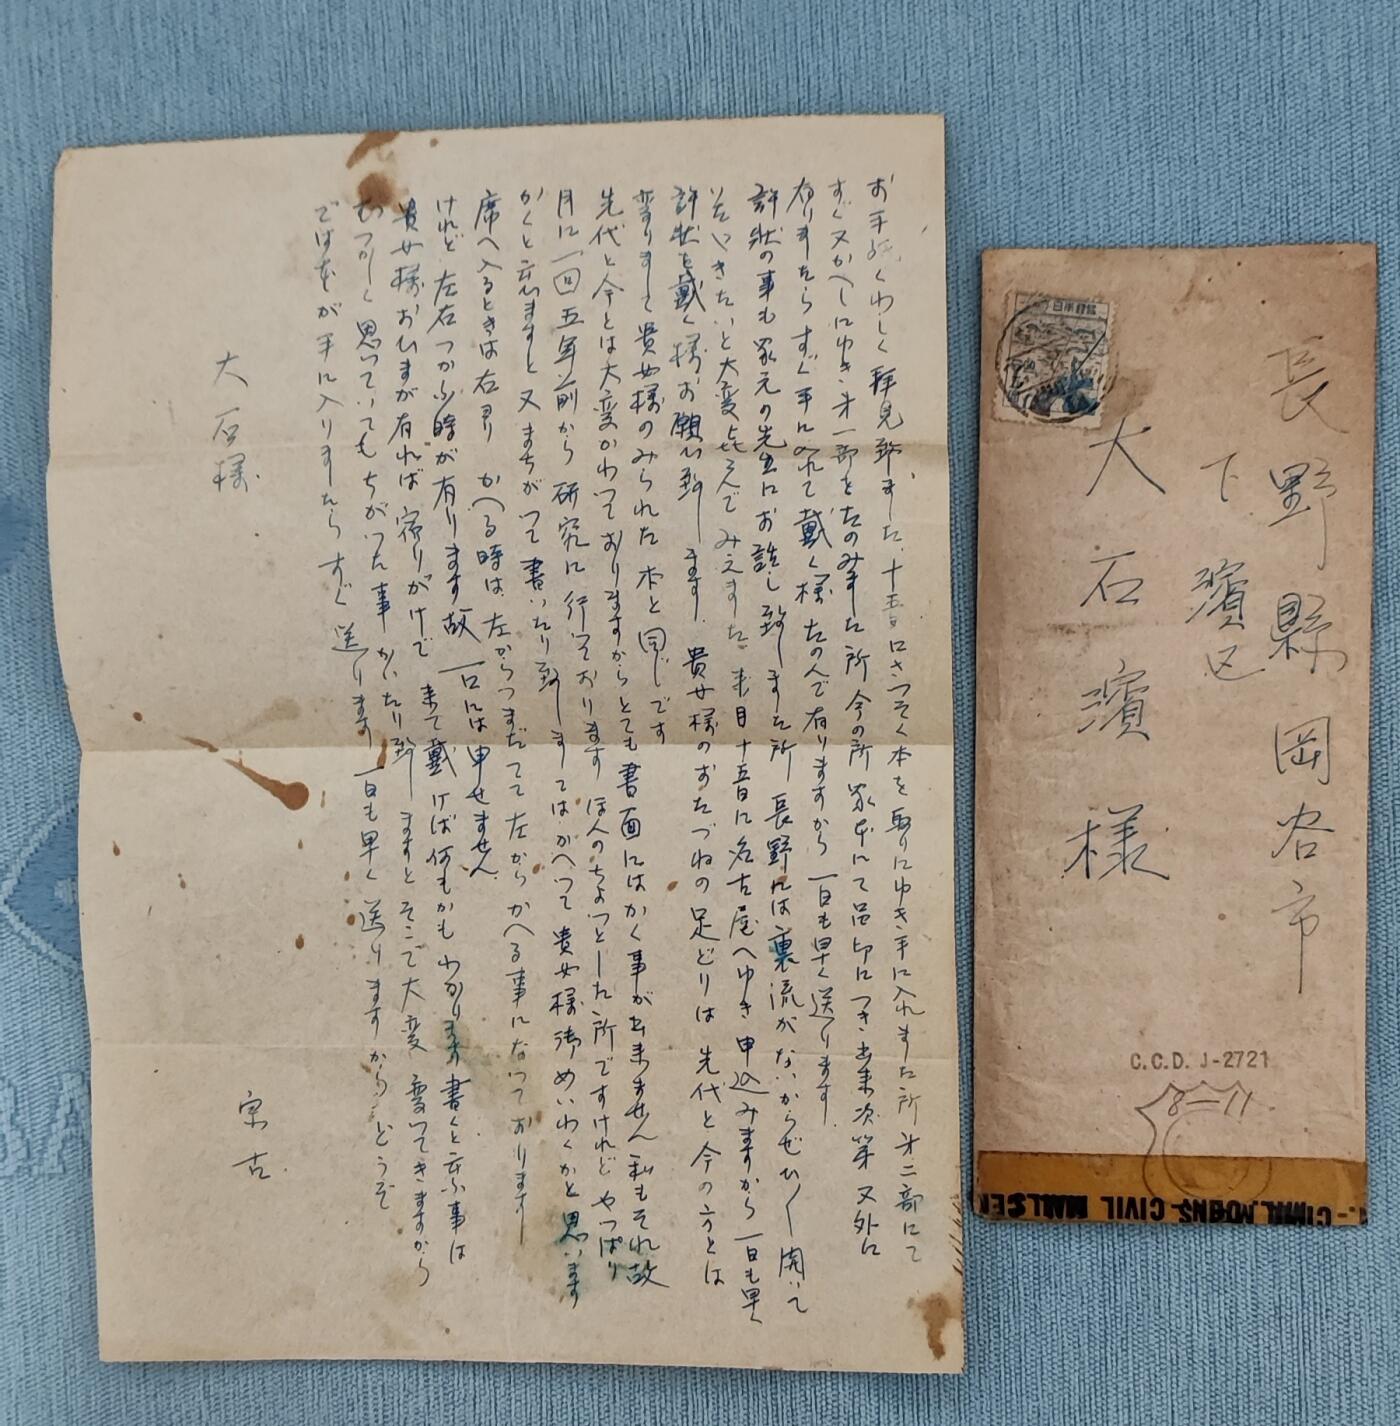 お手紙くわしく拝見致ました、十五日にさつそく本を取りにゆき手に入れました所 才二部にて
すぐ又かへしにゆき才一部をたのみました所 今の所 家本にて品切につき出来次第 又外に
有りましたらすぐ手に入れて戴く様たのんで有りますから 一日も早く送ります
許状の事も家元の先生にお話し致しました所 長野には裏流がないからぜひ〳〵開いて
いきたいと大変喜んでみえました 来月十五日に名古屋へゆき申込みますから一日も早く
許状を戴く様お願い致します。貴女様のおたづねの足どりは 先代と今の方とは
変りまして貴女様のみられた本と同じです
先代と今とは大変かわつておりますからとても書面にはかく事が出来ません 私もそれ故
月に一回五年前から研究に行つております ほんのちよつとした所ですけれど やつぱり
かくと云いますと又まちがつて書いたり致しましてはかへつて貴女様御めいわくかと思います
席へ入るときは右より かへる時は 左からつまだてて左からかへる事になつております
けれど左右つかふ時が有ります故 一口には申せません
貴女様おひまが有れば宿りがけで 来て戴けば何もかもわかります 書くと云ふ事は
むつかしく思つていてもちがつた事かいたり致しますと そこで大変変つてきますから
では本が手に入りましたらすぐ送ります 一日も早く送りますからどうぞ
大石様
宗吉
長野縣岡谷市
下濱区
大石濱様
日本郵便
C.C.D. J-2721
8-11
CIVIL MAILS